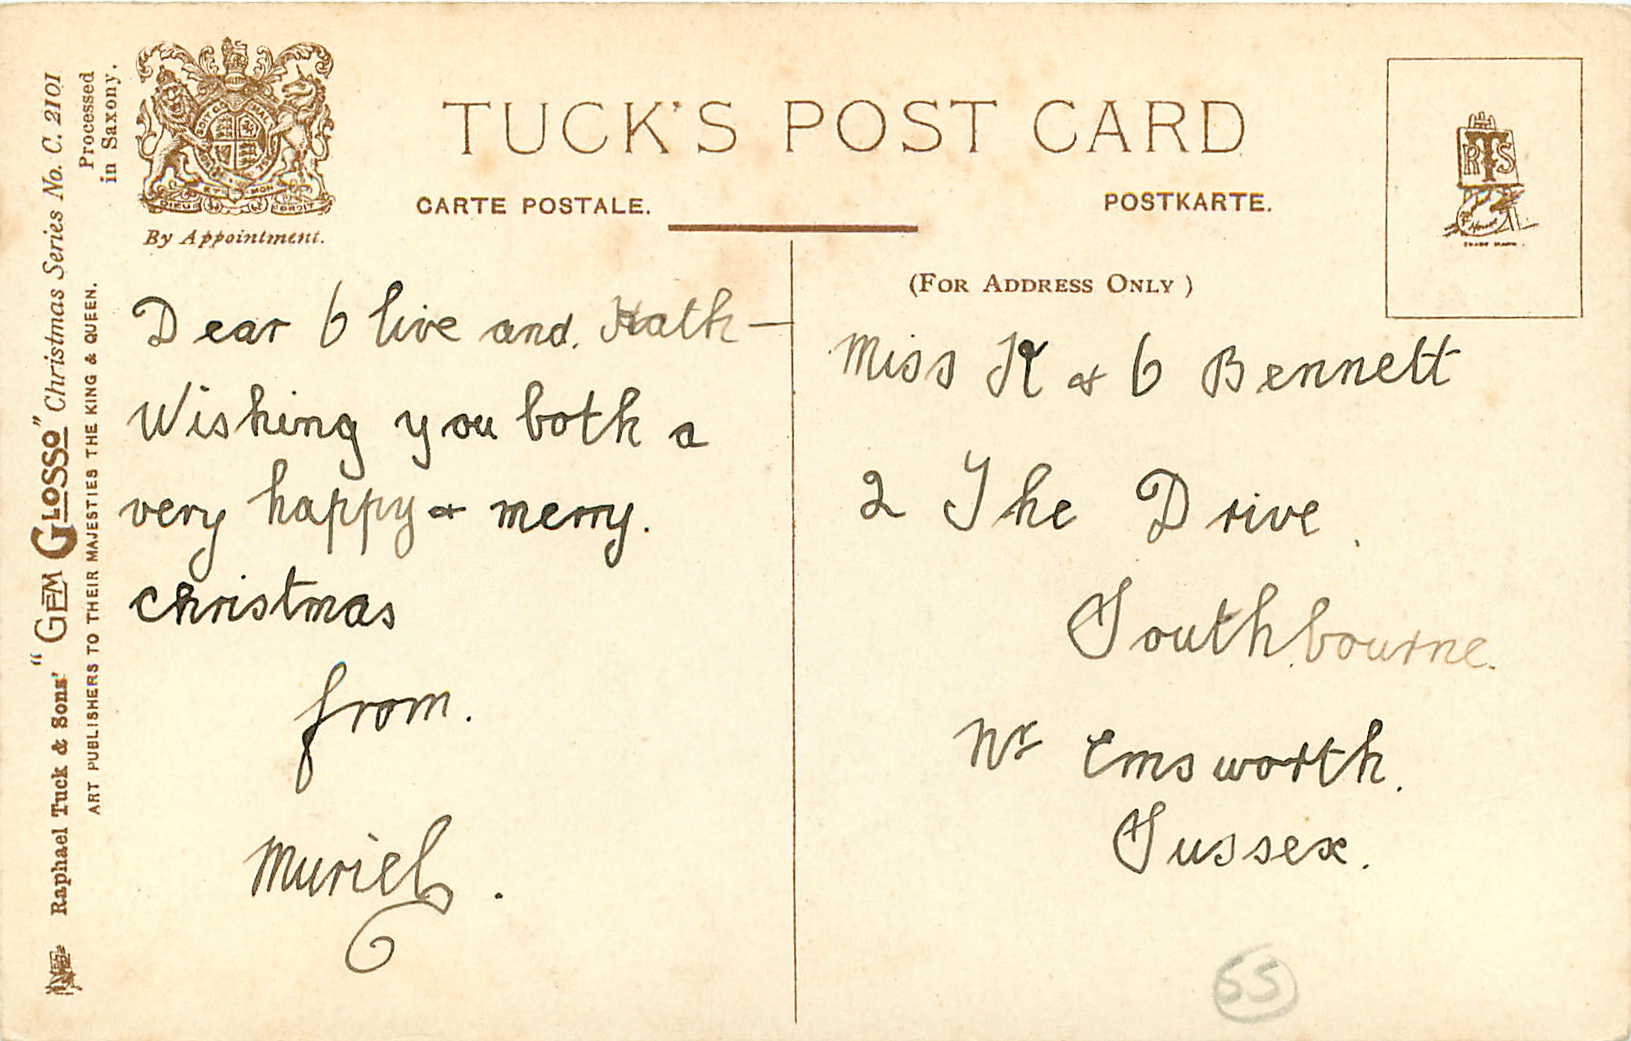 TUCK'S POST CARD
CARTE POSTALE.
POSTKARTE.
By Appointment.
(FOR ADDRESS ONLY)
RTS
TRADE MARK.
Raphael Tuck & Sons' "GEM GLOSSO" Christmas Series No. C. 2101
ART PUBLISHERS TO THEIR MAJESTIES THE KING & QUEEN.
Processed
in Saxony.
Dear Olive and Kath —
Wishing you both a
very happy & merry.
christmas
from.
Muriel.
Miss K & O Bennett
2 The Drive.
Southbourne.
Nr Emsworth.
Sussex.
55